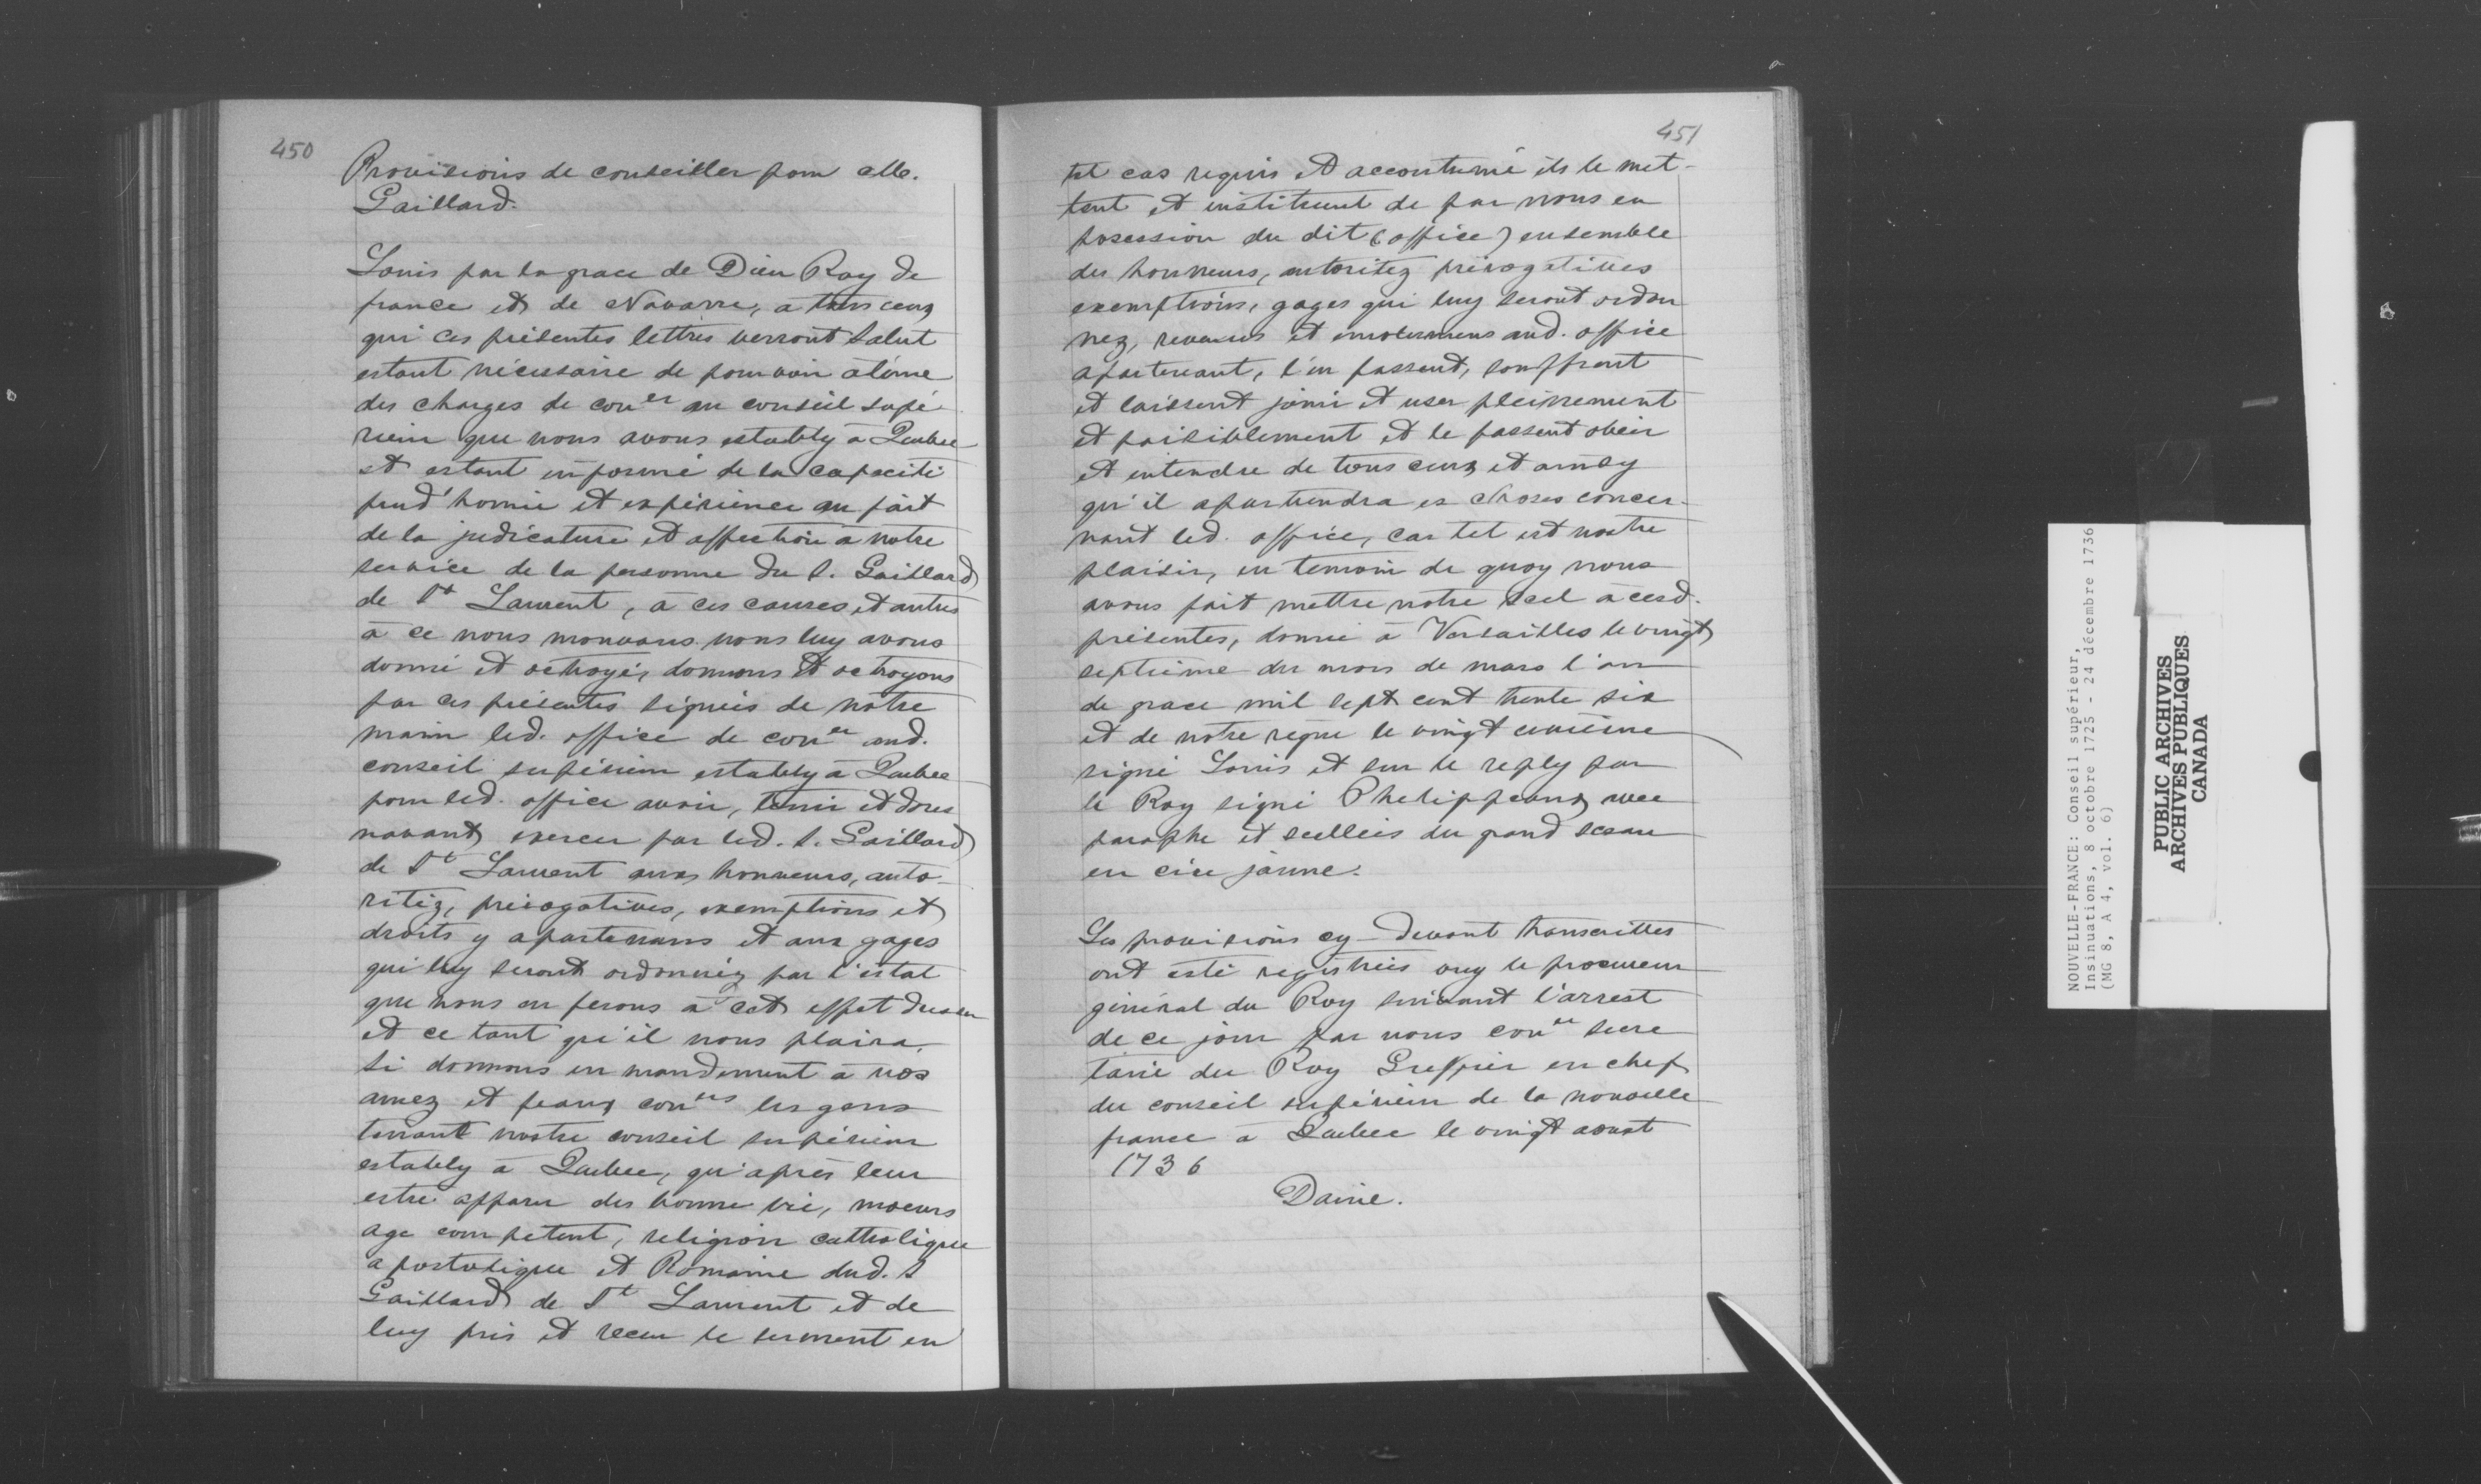 450
Provisions de conseiller pour
Gaillard.
Louis par la grace de Dieu Roy de
france et de Navarre, a tous ceux
qui ces présentes lettres verront Salut
estant nécessaire de pourvoir à l'une
des charges de con^er au conseil supé-
rieur que nous avons estably à Quebec
et estant informé de la capacité
prud'homie et expérience au fait
de la judicature et affection à notre
service de la personne du S. Gaillard
de S^t Laurent, à ces causes et autres
à ce nous mouvans nous luy avons
donné et octroyé, donnons et octroyons
par ces présentes signées de notre
main led. office de con^er aud.
conseil supérieur estably à Quebec
pour led. office avoir, tenir et dores
navant exercer par led. S. Gaillard
de S^t Laurent aux honneurs, auto-
ritéz, prérogatives, exemptions et
droits y apartenans et aux gages
qui luy seront ordonnéz par l'estat
que nous en ferons à cet effet dresser
et ce tant qu'il nous plaira,
si donnons en mandement à nos
amez et feaux con^ers les gens
tenant nostre conseil supérieur
estably à Quebec, qu'après leur
estre apparu des bonne vie, moeurs
age competent, religion catholique
apostolique et Romaine dud. S
Gaillard de S^t Laurent et de
luy pris et receu le serment en
451
tel cas requis et accoutumé ils le met-
tent et instituent de par nous en
posession du dit (office) ensemble
des honneurs, autoritez prérogatives
exemptions, gages qui luy seront ordon
nez, revenus et émolumens aud. office
apartenant, l'en fassent, souffrent
et laissent jouir et user pleinement
et paisiblement et le fassent obeir
et entendre de tous ceux et ainsy
qu'il apartiendra es choses concer-
nant led. office, car tel est nostre
plaisir, en temoin de quoy nous
avons fait mettre notre scel à cesd.
présentes, donné à Versailles le vingt
septième du mois de mars l'an
de grace mil sept cent trente six
et de notre règne le vingt unième
signé Louis et sur le reply par
le Roy signé Phelippeaux avec
paraphe et scellées du grand sceau
en cire jaune.
Les provisions cy-devant transcrittes
ont esté registrées ouy le procureur
général du Roy suivant l'arrest
de ce jour par nous con^er secre
taire du Roy Greffier en chef
du conseil supérieur de la nouvelle
france à Quebec le vingt aoust
1736
Daine.
NOUVELLE-FRANCE: Conseil supérieur,
Insinuations, 8 octobre 1725 - 24 décembre 1736
(MG 8, A 4, vol. 6)
PUBLIC ARCHIVES
ARCHIVES PUBLIQUES
CANADA